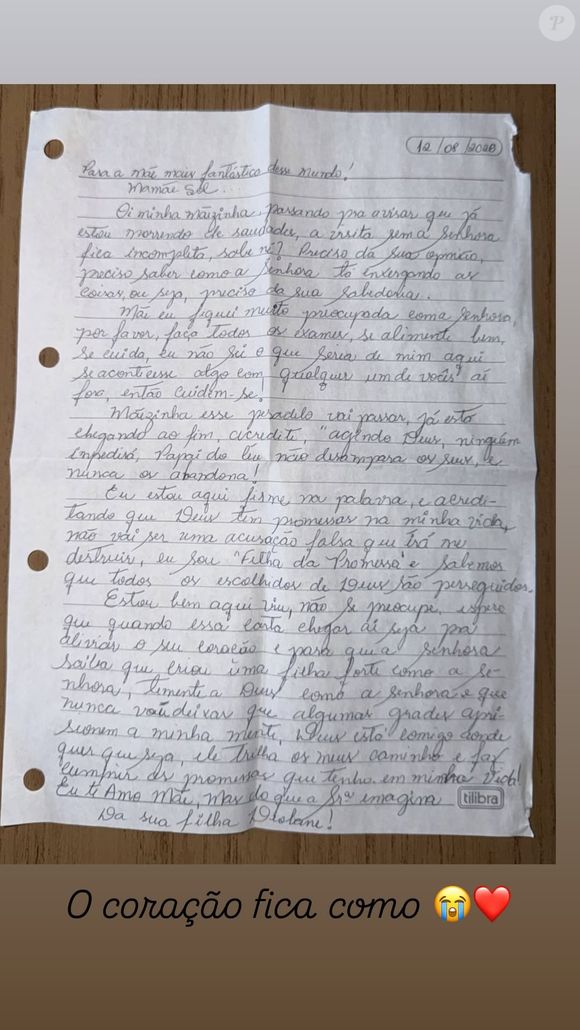 P
12/08/2020
Para a mãe mais fantástica desse mundo!
Mamãe Sol...
Oi minha mãezinha, passando pra avisar que já
estou morrendo de saudades, a visita sem a Senhora
fica incompleta, sabe né? Preciso da sua opinião,
preciso saber como a Senhora tá enxergando as
coisas, ou seja, preciso da sua sabedoria.
Mãe eu fiquei muito preocupada com a Senhora,
por favor, faça todos os exames, se alimente bem,
se cuida, eu não sei o que seria de mim aqui
se acontecesse algo com qualquer um de vocês aí
fora, então cuidem-se!
Mãezinha esse pesadelo vai passar, já está
chegando ao fim, acredite, "agindo Deus, ninguém
impedirá, Papai do Céu não desampara os seus, e
nunca os abandona!
Eu estou aqui firme na palavra, e acredi-
tando que Deus tem promessas na minha vida,
não vai ser uma acusação falsa que irá me
destruir, eu sou "Filha da Promessa" e sabemos
que todos os escolhidos de Deus são perseguidos.
Estou bem aqui viu, não se preocupe, espero
que quando essa carta chegar aí seja pra
aliviar o seu coração e para que a senhora
saiba que criou uma filha forte como a se-
nhora, temente a Deus como a senhora e que
nunca vai deixar que algumas grades apri-
sionem a minha mente, Deus está comigo aonde
quer que seja, ele trilha os meus caminho e faz
cumprir as promessas que tenho em minha vida!
Eu te Amo Mãe, mas do que a Srª imagina
tilibra
Da sua filha
O coração fica como 😭❤️